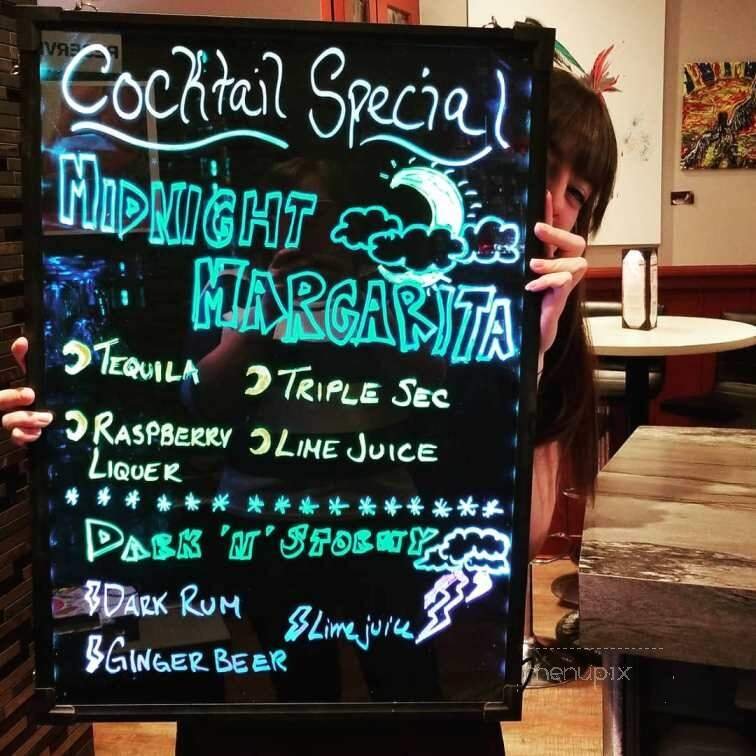 RESERV
Cocktail Special
MIDNIGHT
MARGARITA
TEQUILA
TRIPLE SEC
RASPBERRY
LIQUER
LIME JUICE
DARK 'N' STORMY
DARK RUM
Lime juice
GINGER BEER
menupix